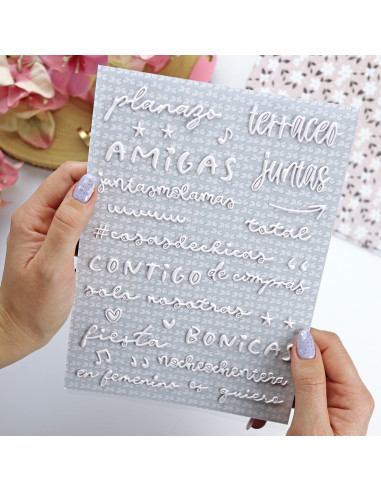 planazo terraceo
AMIGAS juntas
juntasmolamas
uuuuuuu total
#cosasdechicas
CONTIGO de compras
solo nosotras
fiesta BONICAS
nochechentera
en femenino os quiero